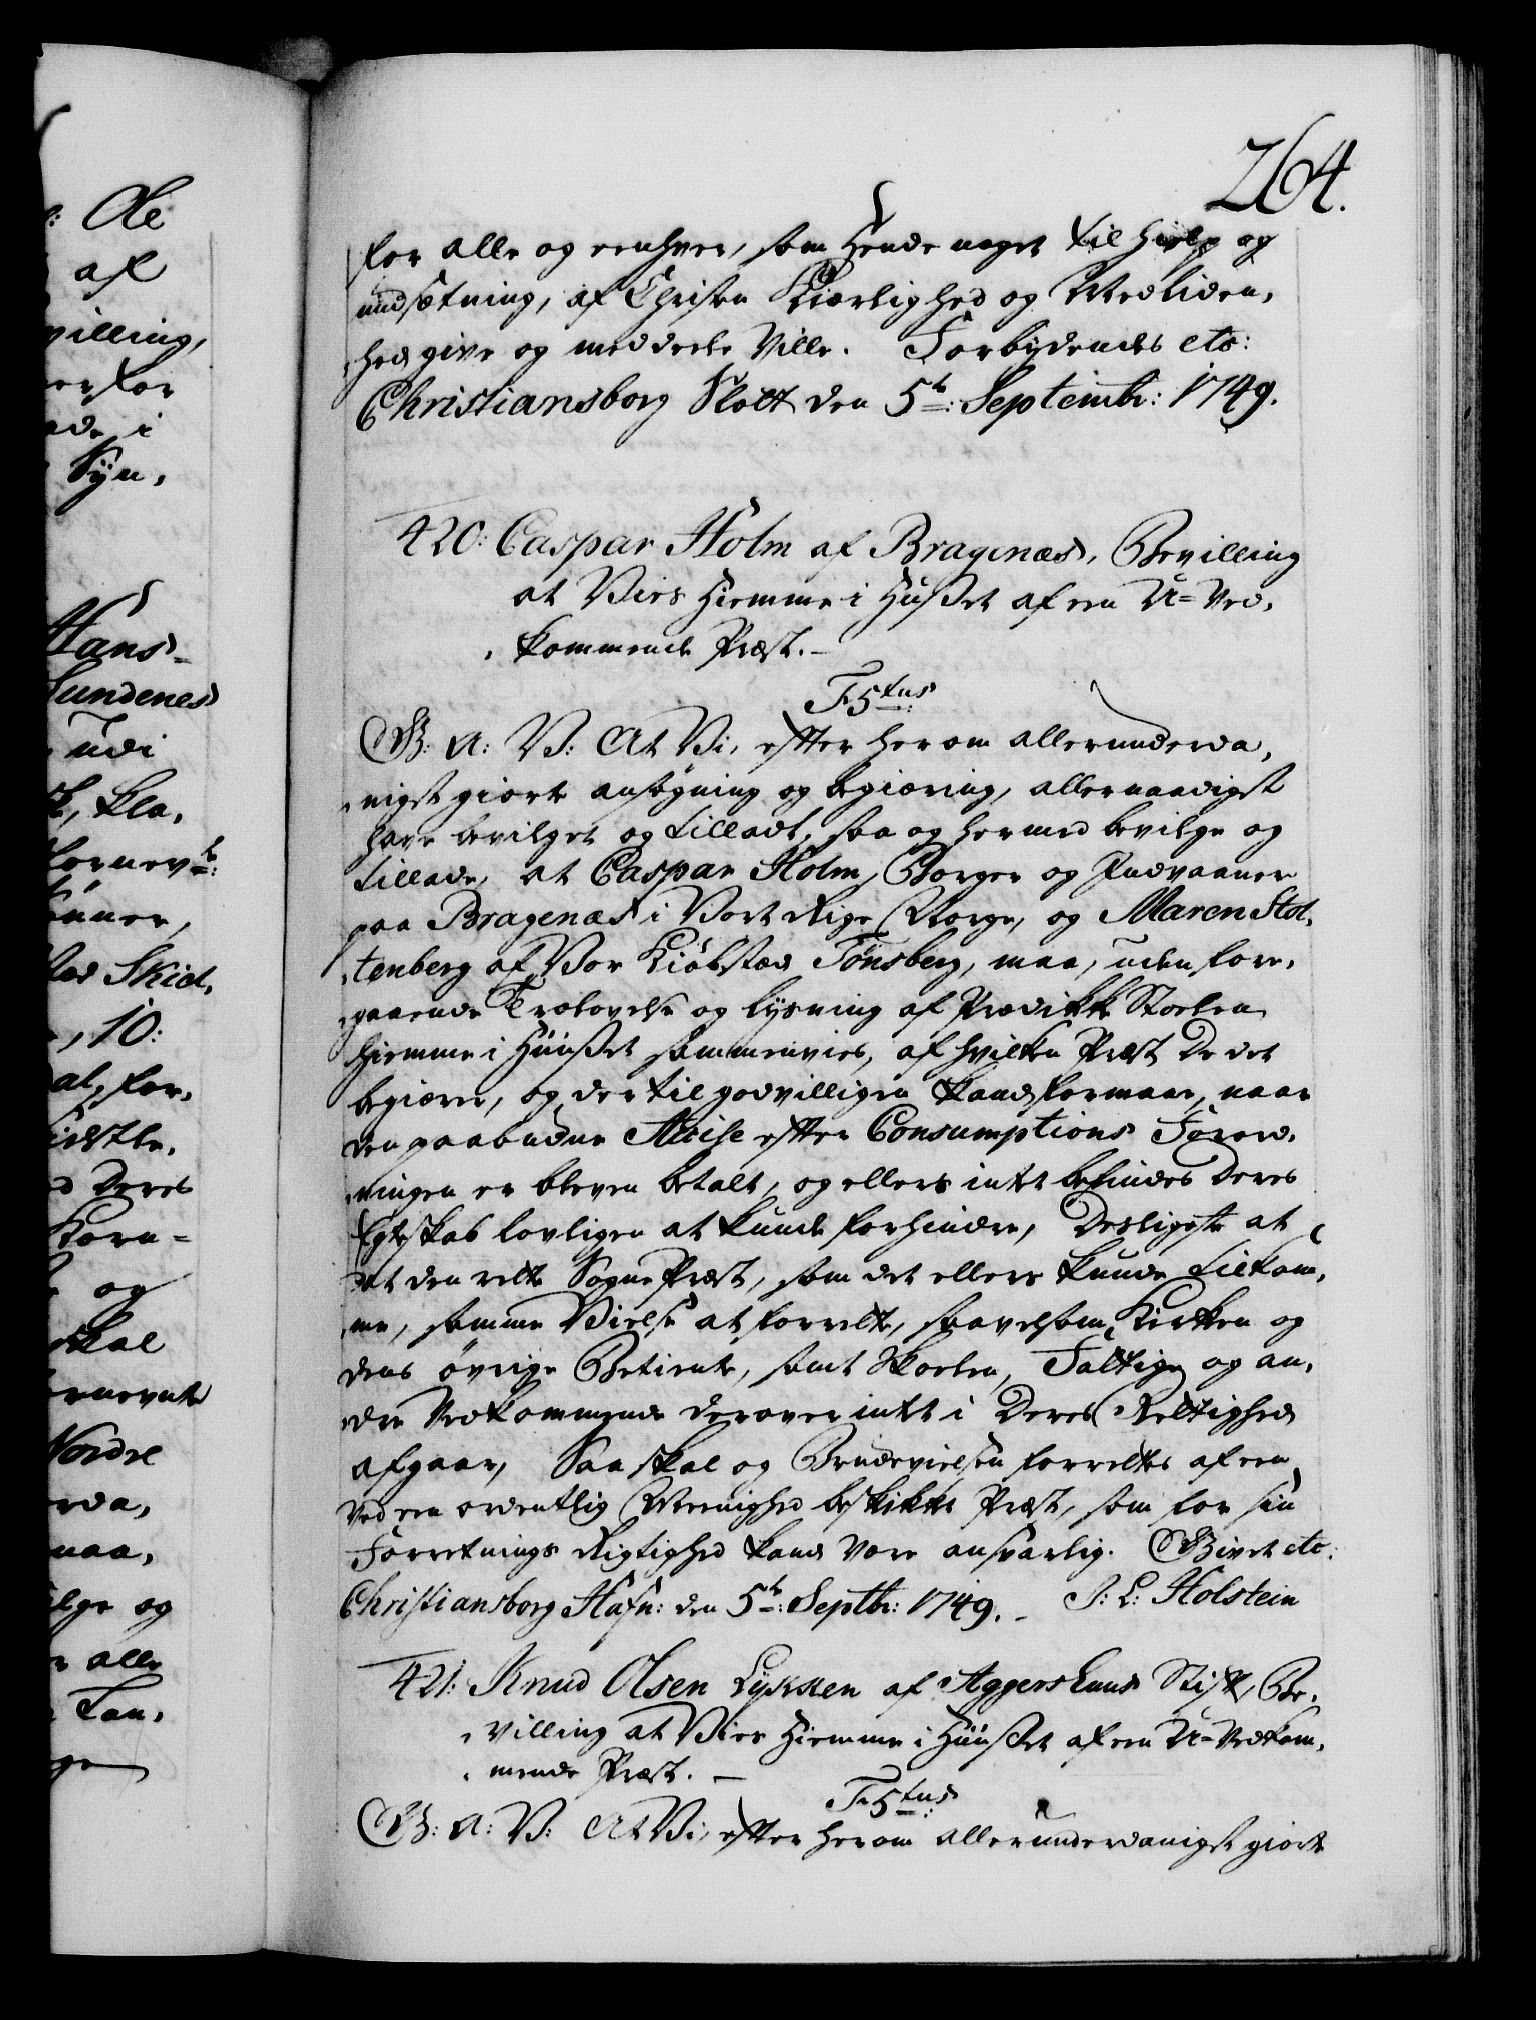 264.
for alle og eenhver, som hende noget til hielp og
undsætning, af Christen Kiærlighed og Medliden,
hed give og meddeele Ville. Forbydendes etc:
Christiansborg Slott den 5te: Septembr: 1749.
420: Caspar Holm af Bragenæs, Bevilling
at Vies hiemme i Huuset af een U=Ved,
kommende Præst.
F5tus:
G: A: V: At Vi, efter herom allerunderda,
nigst giorte ansøgning og begiæring, allernaadigst
have bevilget og tilladt, saa og hermed bevilge og
tillade, at Caspar Holm, Borger og Indvaaner
paa Bragenæs i Vort Rige Norge, og Maren Stol,
tenberg af Vor Kiøbstæd Tønsberg, maa, uden fore,
gaaende Trolovelse og lysning af Prædikke Stoelen
hiemme i Huuset sammenvies, af hvilken Præst De det
begiærer, og der til godvilligen kand formaae, naar
den paabudne Accise efter Consumptions Forord,
ningen er bleven betalt, og ellers intet befindes Deres
Egteskab lovligen at kunde forhindre, Desligeste at
det den rette Sogne Præst, som det ellers kunde tilkom,
me, samme Vielse at forrette, saavelsom Kirken og
dens øvrige Betiente, samt Skoelen, Fattige og an,
dre Vedkommende derover intet i Deres Rettighed
afgaar, Saa skal og Brudevielsen forrettes af een
ved een ordentlig Meenighed beskikket Præst, som for sin
Forretnings Rigtighed kand være ansvarlig. Givet etc:
Christiansborg Hafn: den 5te: Septbr: 1749. J: L: Holstein
421: Knud Olsen Lykken af Aggershuus Stift, Be,
villing at Vies hiemme i Huuset af een U=Vedkom,
mende Præst.
F5tus:
G: A: V: At Vi, efter herom allerunderdanigst giorte